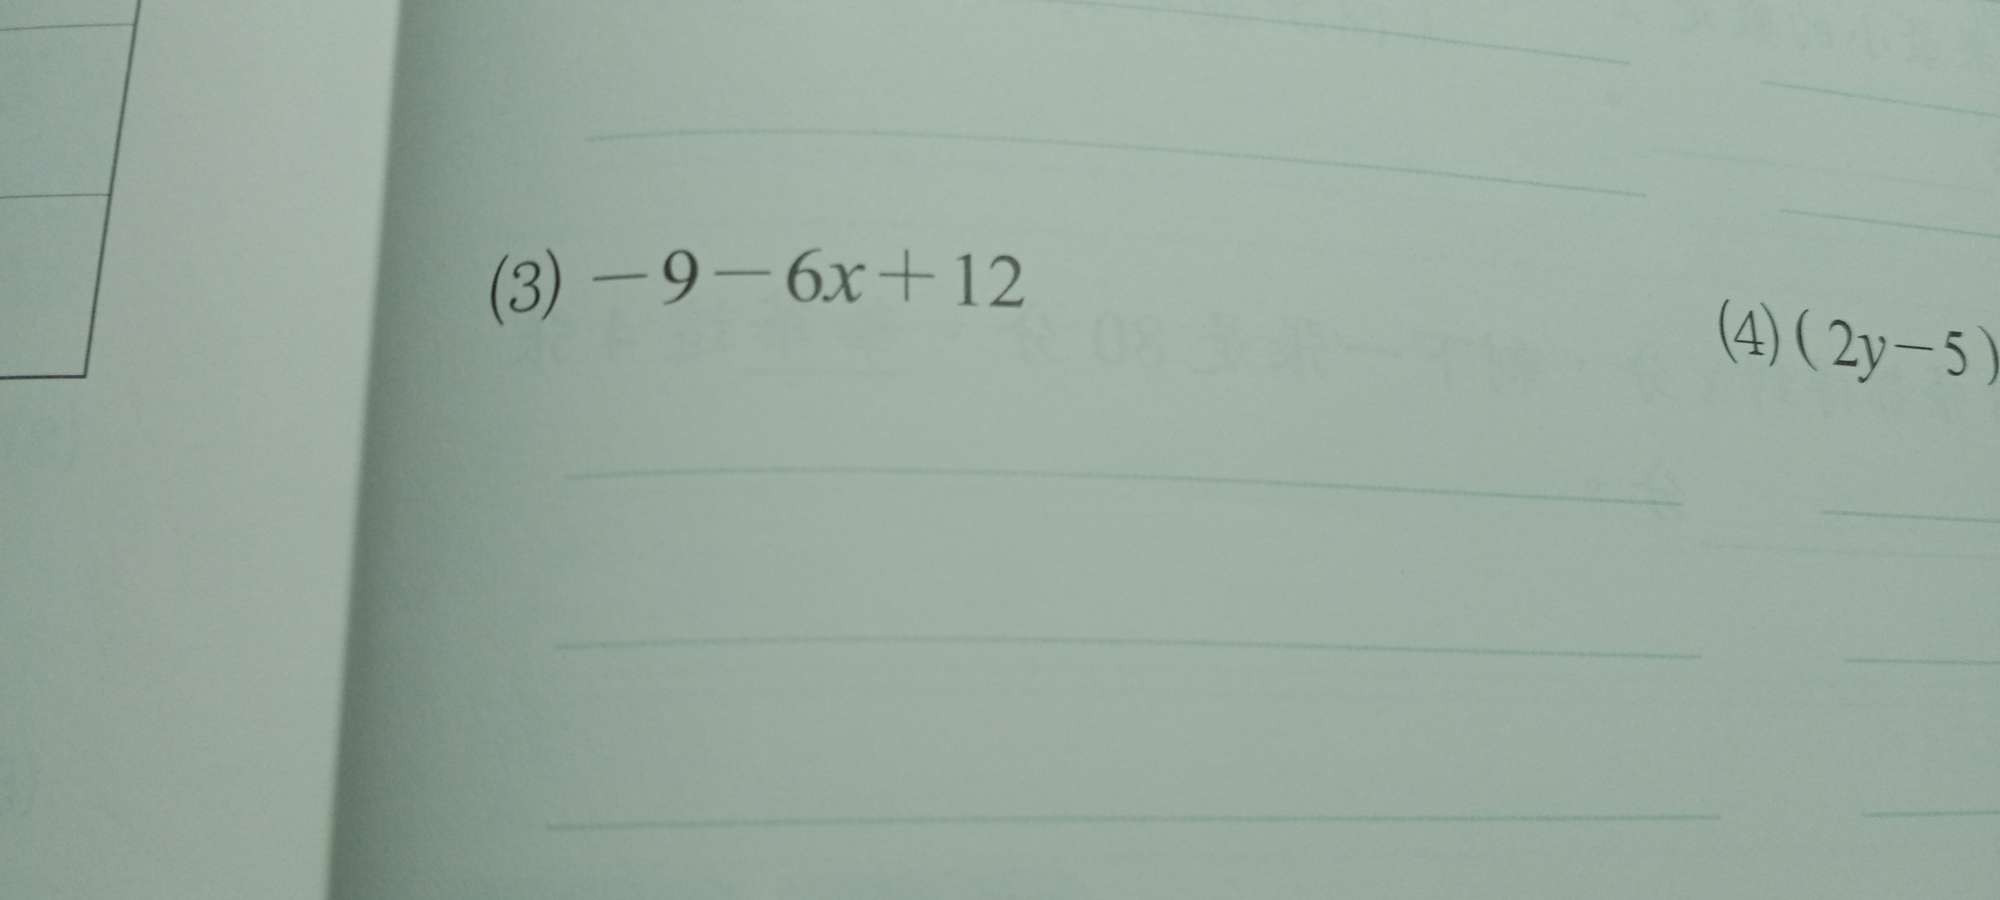 (3) －9－6x＋12
(4) ( 2y－5 )